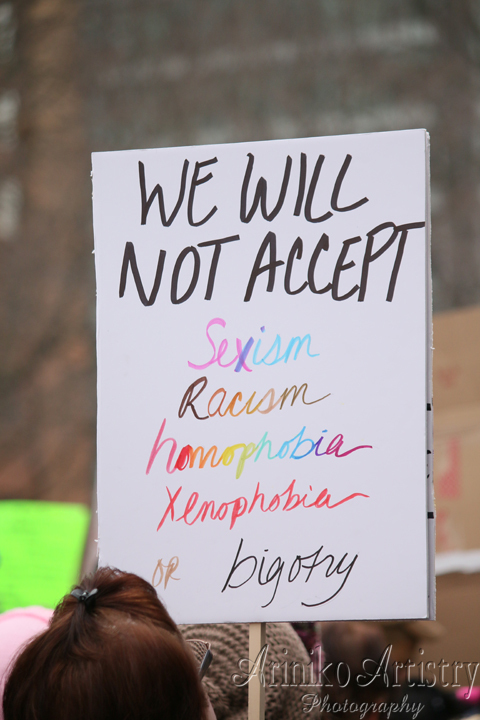 WE WILL
NOT ACCEPT
Sexism
Racism
homophobia
Xenophobia
OR bigotry
Ariniko Artistry
Photography